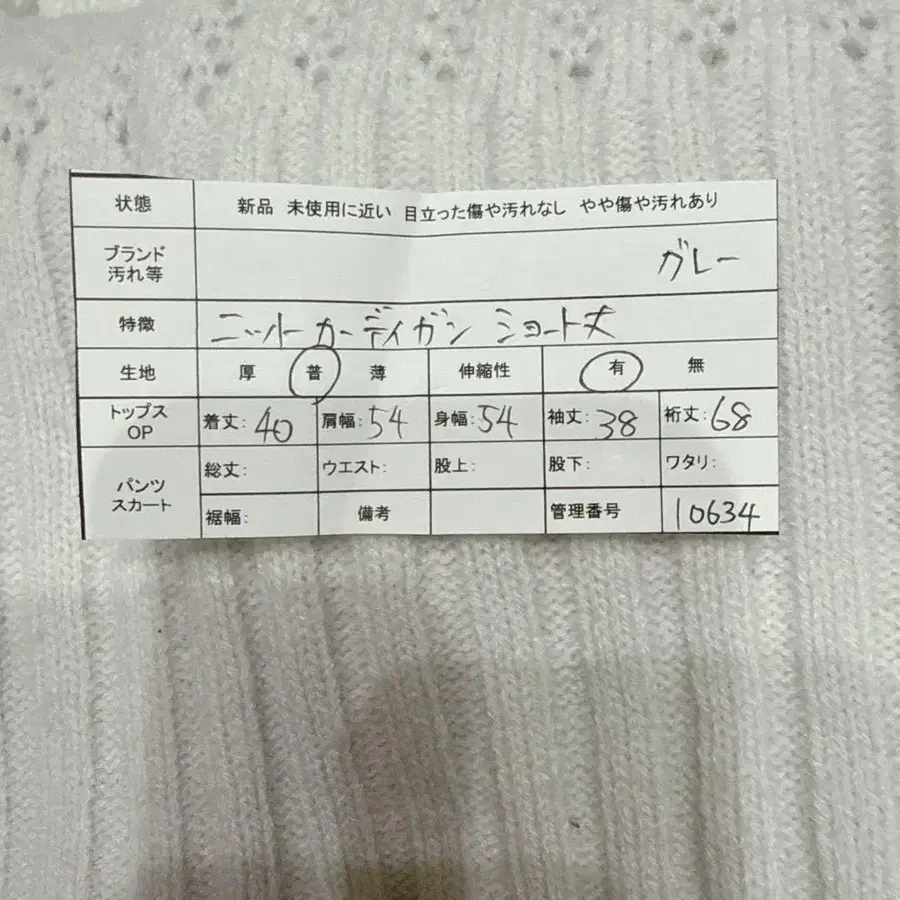 状態 新品 未使用に近い 目立った傷や汚れなし やや傷や汚れあり
ブランド
汚れ等 ガレー
特徴 ニットカーディガン ショート丈
生地 厚 普 薄 伸縮性 有 無
トップス
OP 着丈: 40 肩幅: 54 身幅: 54 袖丈: 38 裄丈: 68
パンツ
スカート 総丈: ウエスト: 股上: 股下: ワタリ:
裾幅: 備考 管理番号 10634